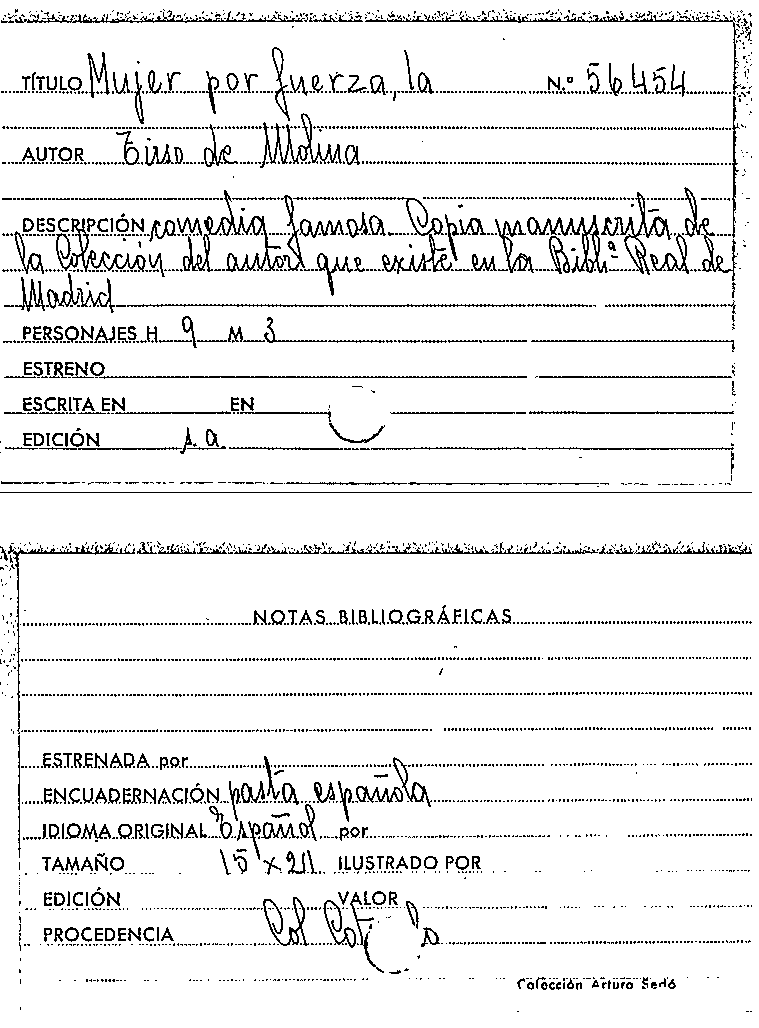 TÍTULO Mujer por fuerza, la N.º 56454
AUTOR Tirso de Molina
DESCRIPCIÓN comedia famosa. Copia manuscrita de
la Colección del autor que existe en la Bibl.ª Real de
Madrid
PERSONAJES H 9 M 3
ESTRENO
ESCRITA EN EN
EDICIÓN s. a.
NOTAS BIBLIOGRÁFICAS
ESTRENADA por
ENCUADERNACIÓN pasta española
IDIOMA ORIGINAL Español por
TAMAÑO 15 x 21 ILUSTRADO POR
EDICIÓN VALOR
PROCEDENCIA Col
Colección Arturo Sedó